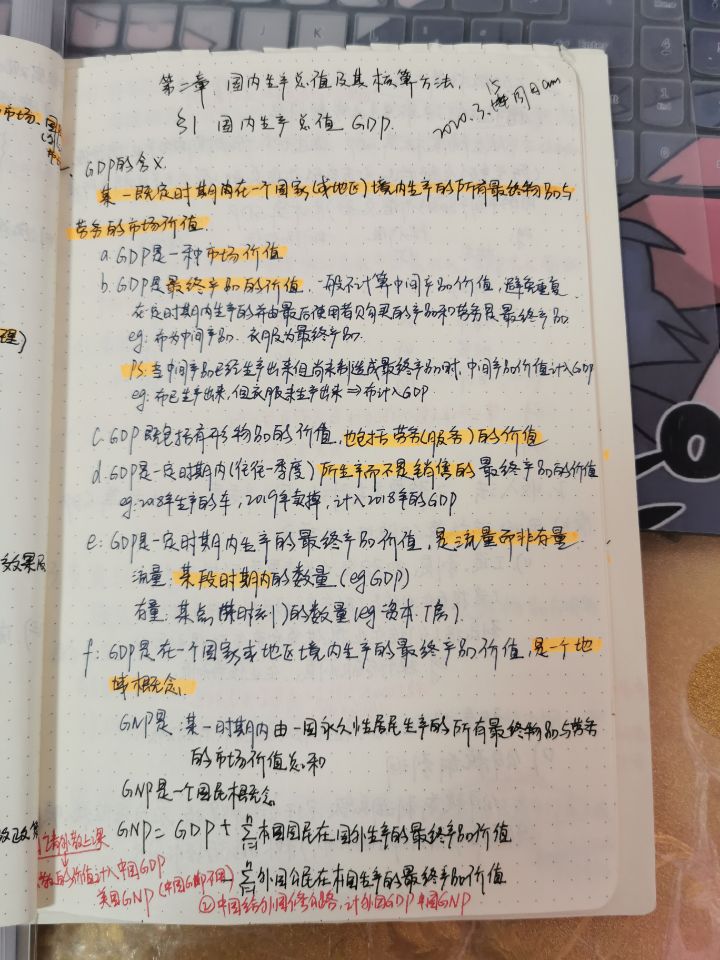 第二章、国内生产总值及其核算方法.
§1 国内生产总值 GDP.
2020.3.15
GDP的含义.
某一既定时期内在一个国家(或地区)境内生产的所有最终物品与
劳务的市场价值.
a. GDP是一种市场价值
b. GDP是最终产品的价值, 一般不计算中间产品价值, 避免重复.
在一定时期内生产的并由最后使用者购买的产品和劳务是最终产品
eg: 布为中间产品. 衣服为最终产品.
PS: 当中间产品已经生产出来但尚未制造成最终产品时, 中间产品价值计入GDP
eg: 布已生产出来, 但衣服未生产出来⇒布计入GDP
c. GDP既包括有形物品的价值, 也包括劳务(服务)的价值
d. GDP是一定时期内(往往一季度)所生产而不是销售的最终产品的价值
eg: 2018年生产的车, 2019年卖掉, 计入2018年的GDP
e: GDP是一定时期内生产的最终产品价值, 是流量而非存量
流量: 某段时期内的数量 (eg GDP)
存量: 某点(某时刻)的数量 (eg 资本.
f: GDP是在一个国家或地区境内生产的最终产品价值, 是一个地
域概念.
GNP是: 某一时期内由一国永久性居民生产的所有最终物品与劳务
的市场价值总和
GNP是一个国民概念
GNP = GDP + n∑i=1 本国国民在国外生产的最终产品价值
- n∑i=1 外国公民在本国生产的最终产品价值.
请外教上课
的价值计入中国GDP
美国GNP (中国GNP不用)
②中国给外国修公路, 计外国GDP 中国GNP
市场.
理)
效果